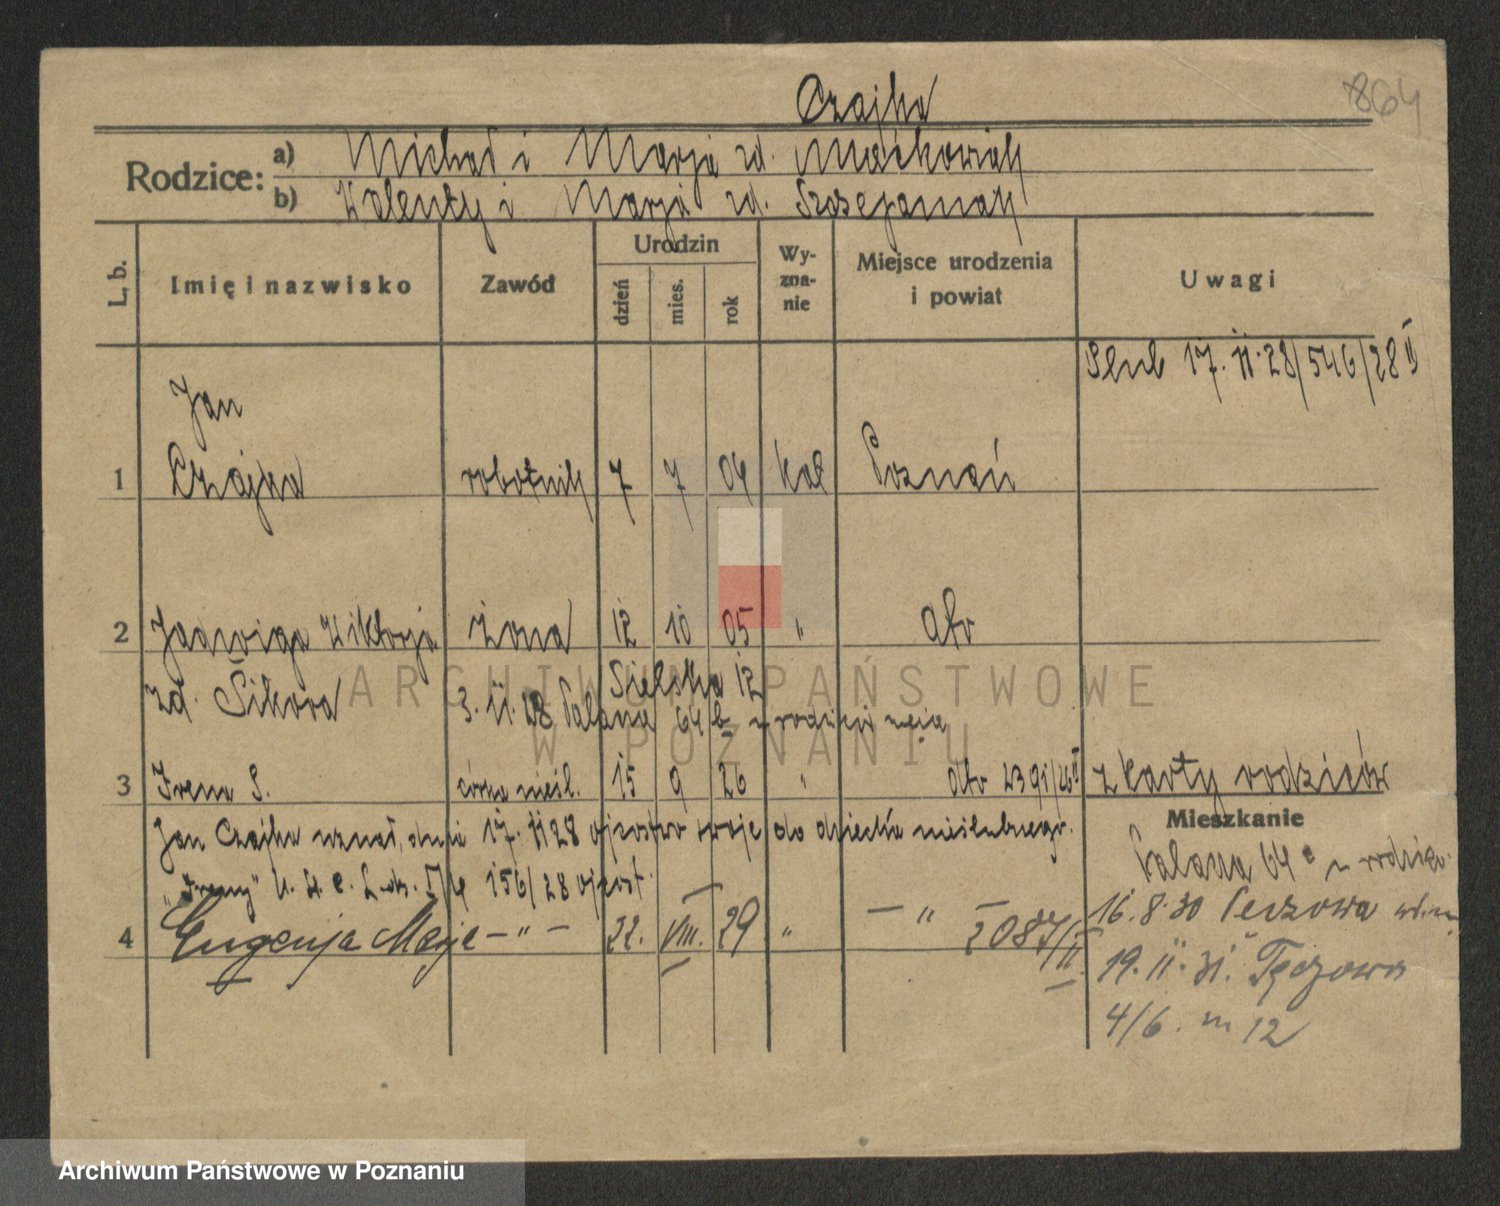 Czajka
864
Rodzice: a) Michał i Marja zd. Maćkowiak
b) Walenty i Marja zd. Szczepaniak
L. b. Imię i nazwisko Zawód Urodzin dzień mies. rok Wyznanie Miejsce urodzenia i powiat Uwagi
Ślub 17. 11. 28/546/28 II
Jan
1 Czajka robotnik 7 7 04 kat Poznań
2 Jadwiga Wiktorja żona 12 10 05 " dto
Sielska 12
zd. Sikora 3. 11. 28 Palana 64 b u rodziców
3 Irena S. córka nieśl. 15 9 26 " dto 2391/26 II z karty rodziców
Jan Czajka uznał dnia 17. 11 28 ojcostwo swoje do dziecka nieślubnego
"Ireny" 156/28 ojcost.
Mieszkanie
Palana 64
16. 8. 30
4 Eugenja - " - 22. VIII. 29 " - " - 2087/II
19. 11. 31. Tęczowa
4/6. m 12
ARCHIWUM PAŃSTWOWE
W POZNANIU
Archiwum Państwowe w Poznaniu